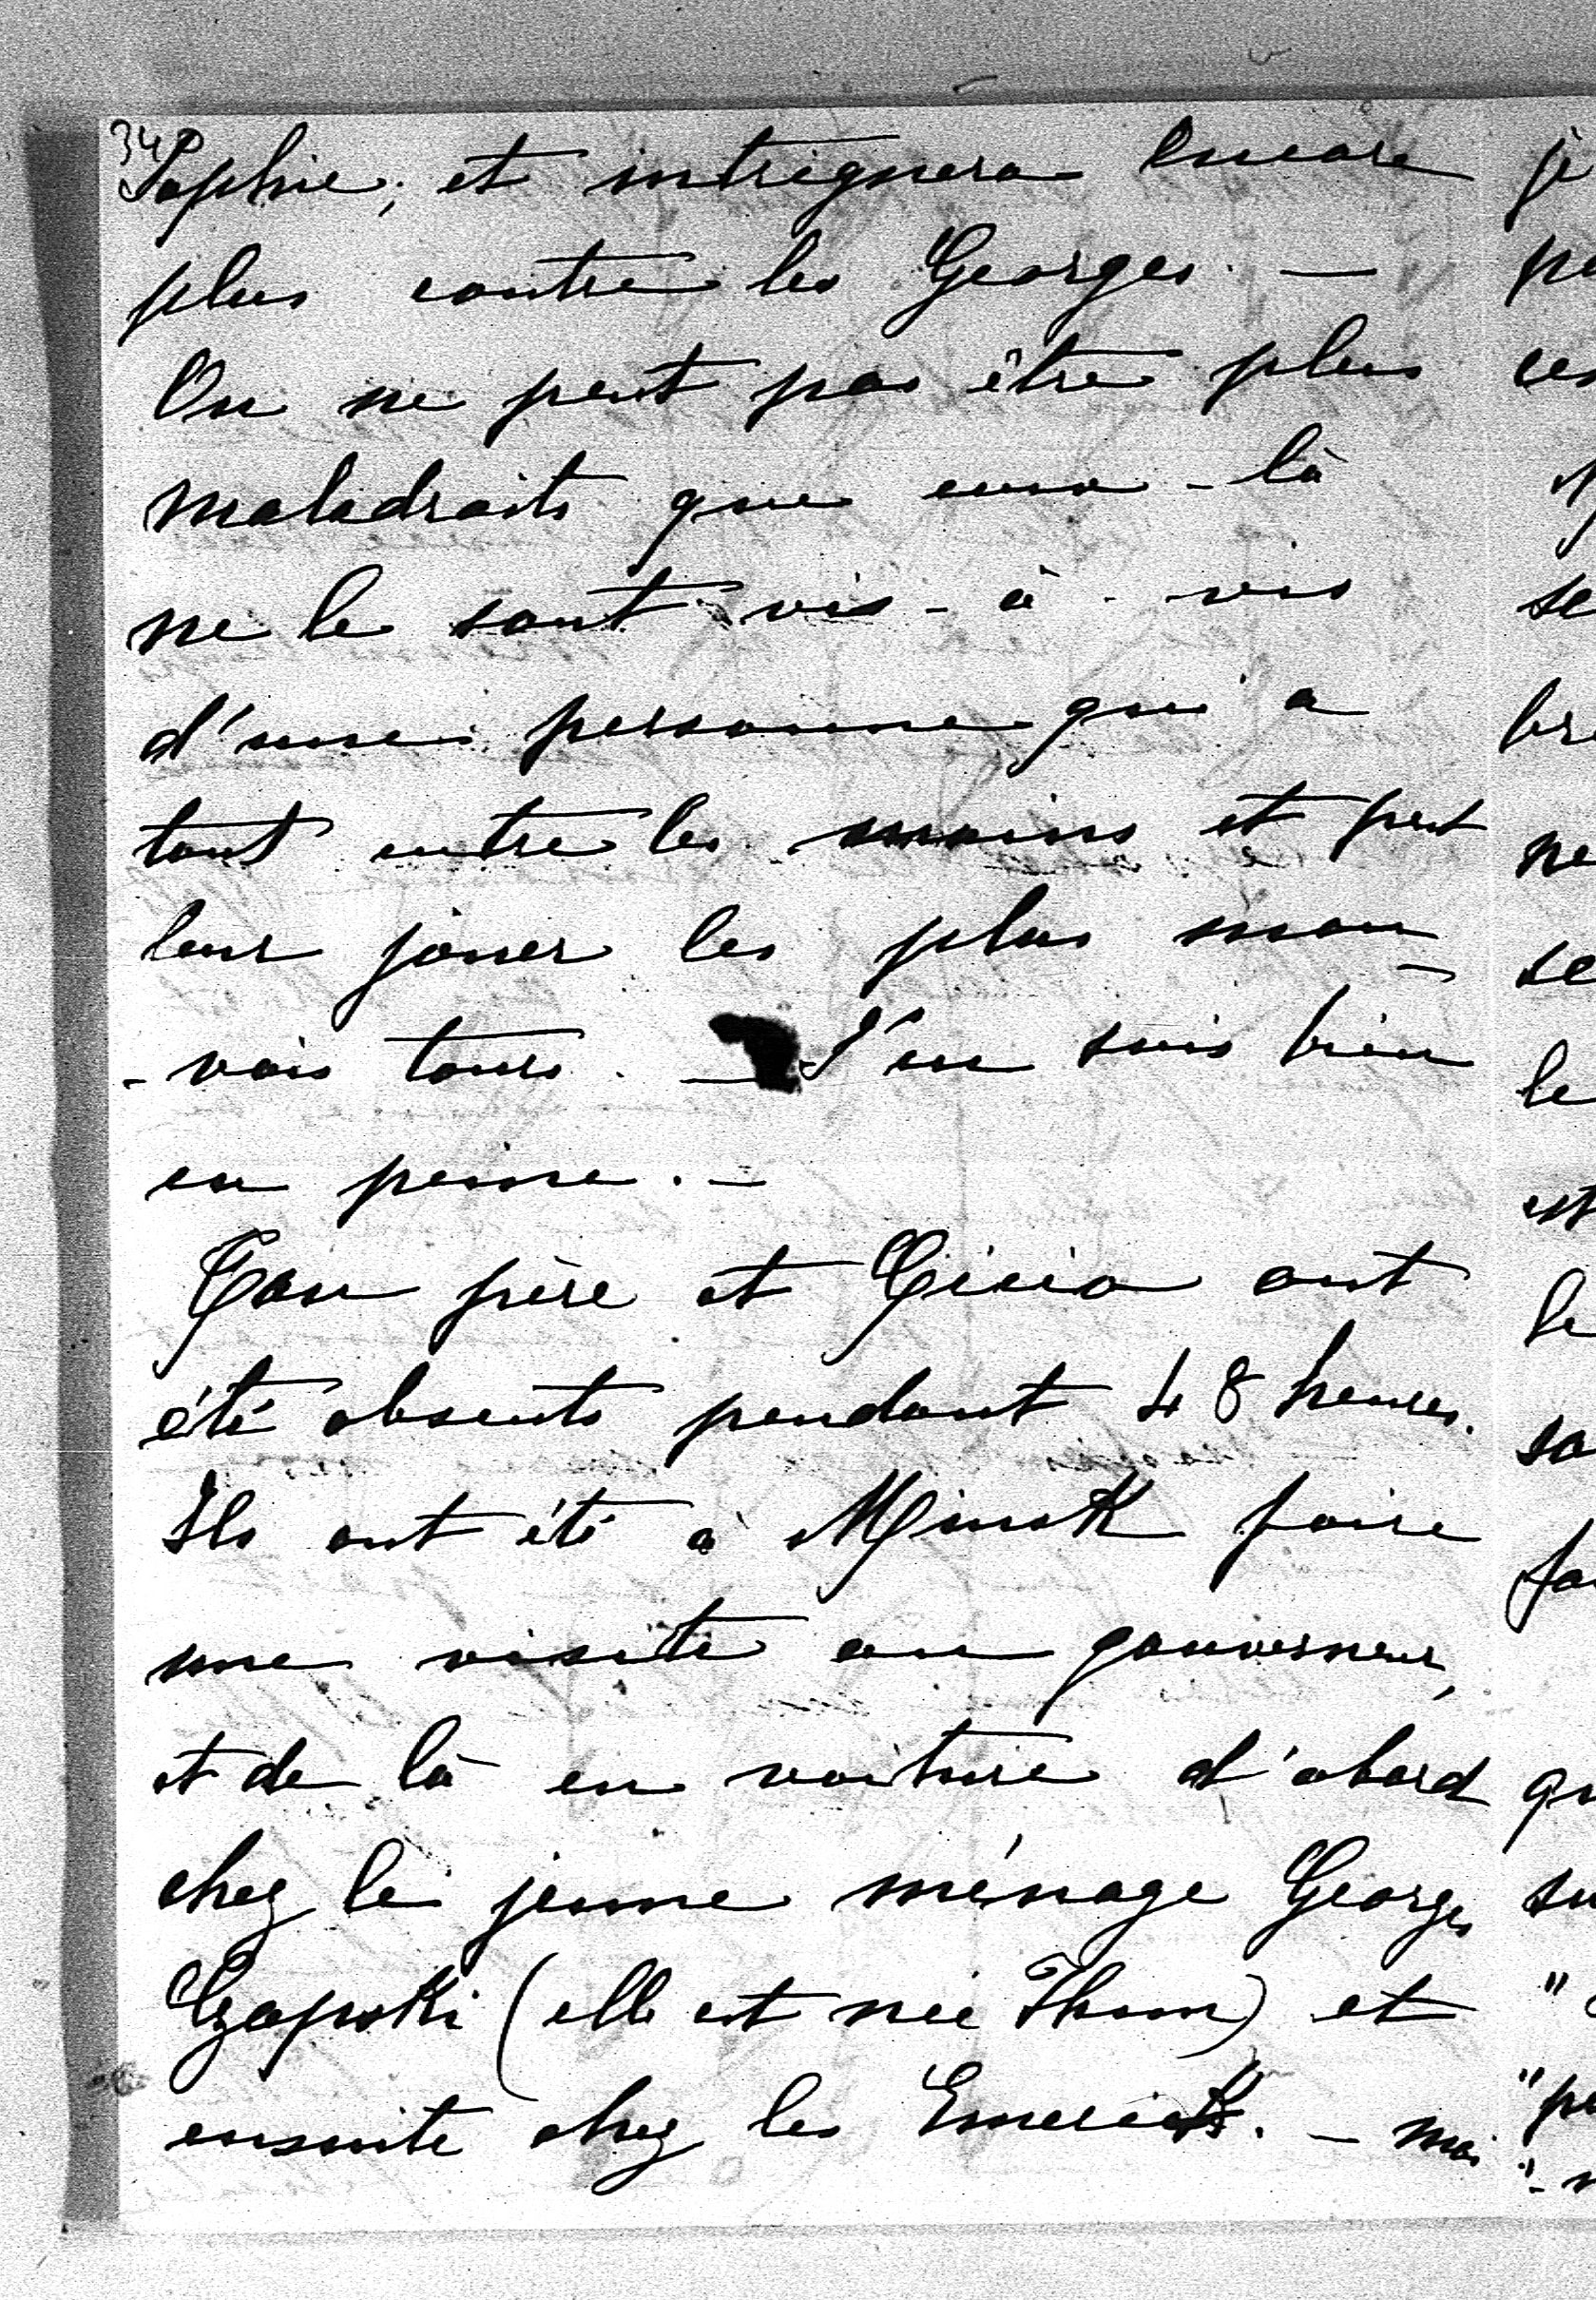 34
Sophie, et intriguera encore
plus contre les Georges. —
On ne peut pas être plus
maladroits que ceux-là
ne le sont vis-à-vis
d'une personne qui a
tout entre les mains et peut
leur jouer les plus mau-
-vais tours. — J'en suis bien
en peine. —
Ton père et Gicio ont
été absents pendant 48 heures.
Ils ont été à Minsk faire
une visite au gouverneur,
et de là en voiture d'abord
chez le jeune ménage Georges
Czapski (elle est née Thun) et
ensuite chez les Emerick. — moi